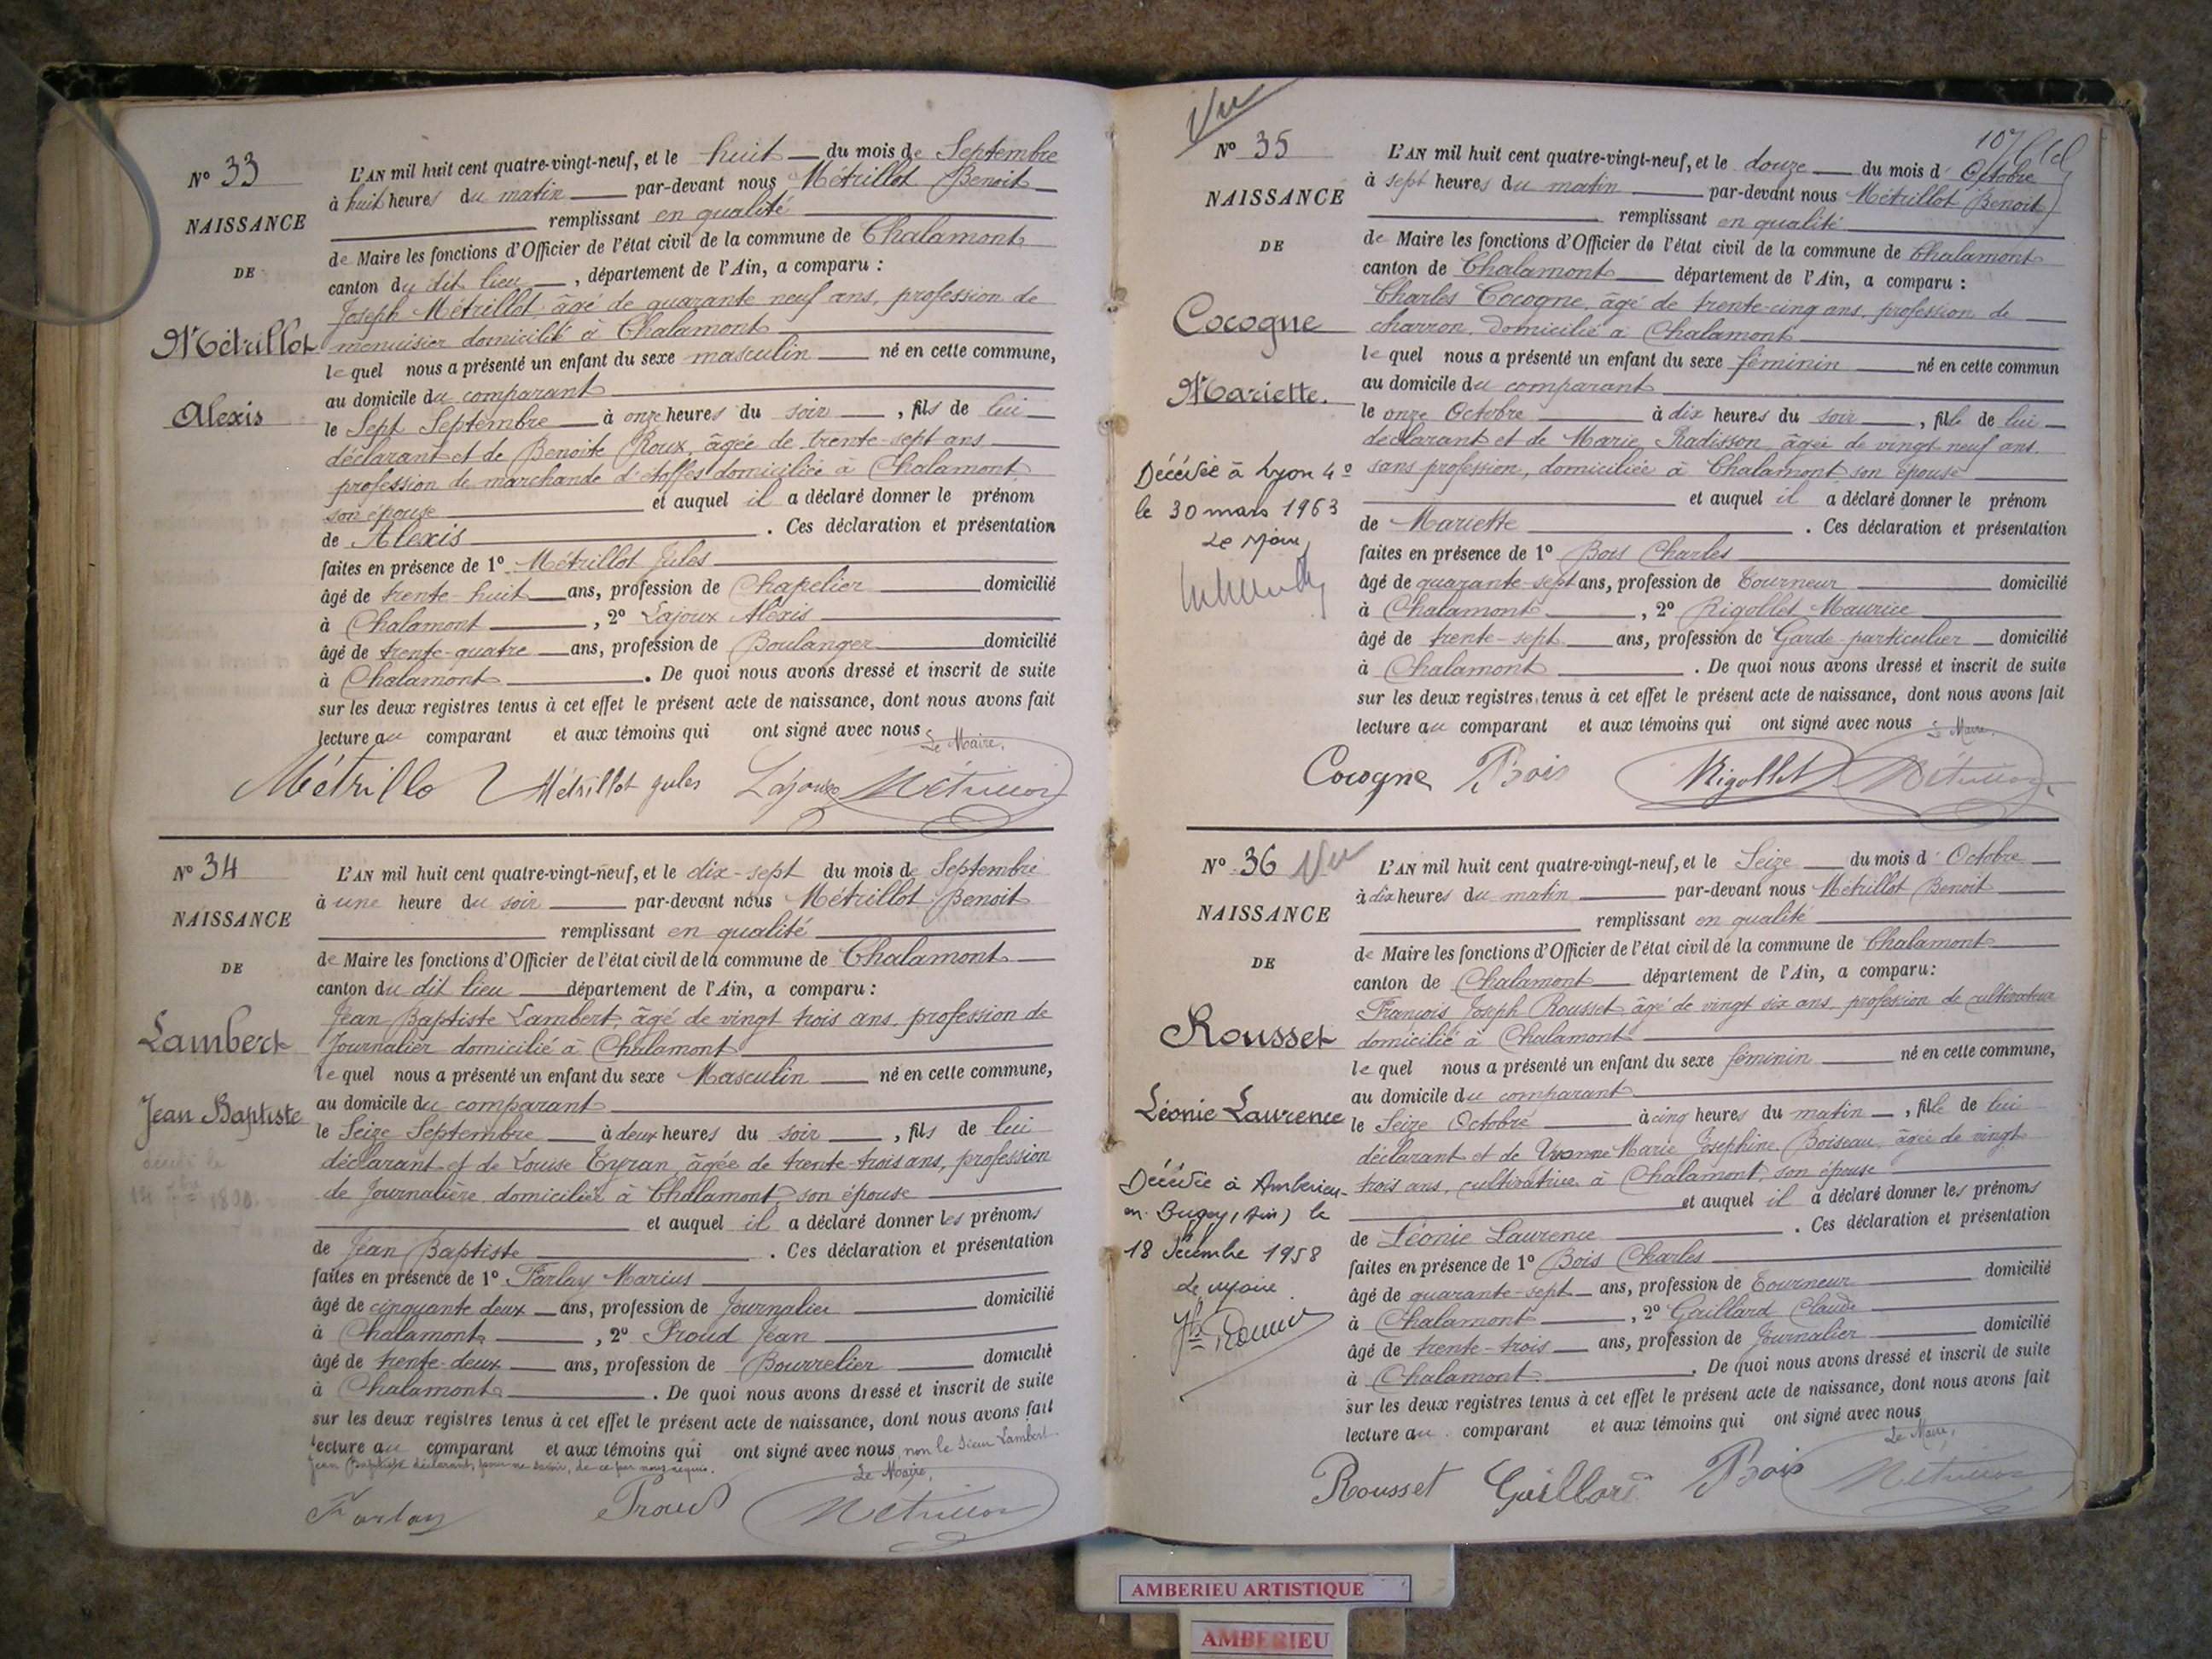 N° 33
NAISSANCE
DE
Métrillot
Alexis
L'AN mil huit cent quatre-vingt-neuf, et le huit du mois de Septembre
à huit heures du matin par-devant nous Métrillot Benoit
remplissant en qualité
de Maire les fonctions d'Officier de l'état civil de la commune de Chalamont
canton du dit lieu, département de l'Ain, a comparu :
Joseph Métrillot, âgé de quarante neuf ans, profession de
menuisier domicilié à Chalamont
lequel nous a présenté un enfant du sexe masculin né en cette commune,
au domicile du comparant
le Sept Septembre à onze heures du soir, fils de lui
déclarant et de Benoite Roux, âgée de trente-sept ans
profession de marchande d'étoffes domiciliée à Chalamont
son épouse et auquel il a déclaré donner le prénom
de Alexis. Ces déclaration et présentation
faites en présence de 1° Métrillot Jules
âgé de trente-huit ans, profession de Chapelier domicilié
à Chalamont, 2° Lajoux Alexis
âgé de trente-quatre ans, profession de Boulanger domicilié
à Chalamont. De quoi nous avons dressé et inscrit de suite
sur les deux registres tenus à cet effet le présent acte de naissance, dont nous avons fait
lecture au comparant et aux témoins qui ont signé avec nous
Le Maire,
Métrillo Métrillot jules Lajoux Métrillot
N° 34
NAISSANCE
DE
Lambert
Jean Baptiste
décédé le
1890
L'AN mil huit cent quatre-vingt-neuf, et le dix-sept du mois de Septembre
à une heure du soir par-devant nous Métrillot Benoit
remplissant en qualité
de Maire les fonctions d'Officier de l'état civil de la commune de Chalamont
canton du dit lieu département de l'Ain, a comparu :
Jean-Baptiste Lambert, âgé de vingt trois ans, profession de
Journalier domicilié à Chalamont
lequel nous a présenté un enfant du sexe Masculin né en cette commune,
au domicile du comparant
le Seize Septembre à deux heures du soir, fils de lui
déclarant et de Louise Tyran, âgée de trente-trois ans, profession
de Journalière domiciliée à Chalamont, son épouse
et auquel il a déclaré donner les prénoms
de Jean Baptiste. Ces déclaration et présentation
faites en présence de 1° Farlay Marius
âgé de cinquante deux ans, profession de Journalier domicilié
à Chalamont, 2° Proud Jean
âgé de trente-deux ans, profession de Bourrelier domicilié
à Chalamont. De quoi nous avons dressé et inscrit de suite
sur les deux registres tenus à cet effet le présent acte de naissance, dont nous avons fait
lecture au comparant et aux témoins qui ont signé avec nous, non le sieur Lambert
Jean Baptiste déclarant, pour ne savoir, de ce par nous requis.
Le Maire,
Farlay Proud Métrillot
Vu
107
N° 35
NAISSANCE
DE
Cocogne
Mariette.
Décédée à Lyon 4°
le 30 mars 1963
Le Maire
L'AN mil huit cent quatre-vingt-neuf, et le douze du mois d'Octobre
à sept heures du matin par-devant nous Métrillot Benoit
remplissant en qualité
de Maire les fonctions d'Officier de l'état civil de la commune de Chalamont
canton de Chalamont département de l'Ain, a comparu :
Charles Cocogne, âgé de trente-cinq ans, profession de
charron, domicilié à Chalamont
lequel nous a présenté un enfant du sexe féminin né en cette commun
au domicile du comparant
le onze Octobre à dix heures du soir, fille de lui
déclarant et de Marie Radisson âgée de vingt neuf ans.
sans profession, domiciliée à Chalamont son épouse
et auquel il a déclaré donner le prénom
de Mariette. Ces déclaration et présentation
faites en présence de 1° Bois Charles
âgé de quarante-sept ans, profession de Tourneur domicilié
à Chalamont, 2° Rigollet Maurice
âgé de trente-sept ans, profession de Garde-particulier domicilié
à Chalamont. De quoi nous avons dressé et inscrit de suite
sur les deux registres tenus à cet effet le présent acte de naissance, dont nous avons fait
lecture au comparant et aux témoins qui ont signé avec nous
Le Maire.
Cocogne Bois Rigollet Métrillot
N° 36 Vu
NAISSANCE
DE
Rousset
Léonie Laurence
Décédée à Ambérieu-
en-Bugey (Ain) le
18 décembre 1958
Le Maire
L'AN mil huit cent quatre-vingt-neuf, et le Seize du mois d'Octobre
à dix heures du matin par-devant nous Métrillot Benoit
remplissant en qualité
de Maire les fonctions d'Officier de l'état civil de la commune de Chalamont
canton de Chalamont département de l'Ain, a comparu :
François Joseph Rousset âgé de vingt six ans, profession de cultivateur
domicilié à Chalamont
lequel nous a présenté un enfant du sexe féminin né en cette commune,
au domicile du comparant
le Seize Octobre à cinq heures du matin, fille de lui
déclarant et de Yvonne Marie Joséphine Boiseau, âgée de vingt
trois ans, cultivatrice à Chalamont, son épouse
et auquel il a déclaré donner les prénoms
de Léonie Laurence. Ces déclaration et présentation
faites en présence de 1° Bois Charles
âgé de quarante-sept ans, profession de Tourneur domicilié
à Chalamont, 2° Gaillard Claude
âgé de trente-trois ans, profession de Journalier domicilié
à Chalamont. De quoi nous avons dressé et inscrit de suite
sur les deux registres tenus à cet effet le présent acte de naissance, dont nous avons fait
lecture au comparant et aux témoins qui ont signé avec nous
Le Maire,
Rousset Gaillard Bois Métrillot
AMBERIEU ARTISTIQUE
AMBERIEU